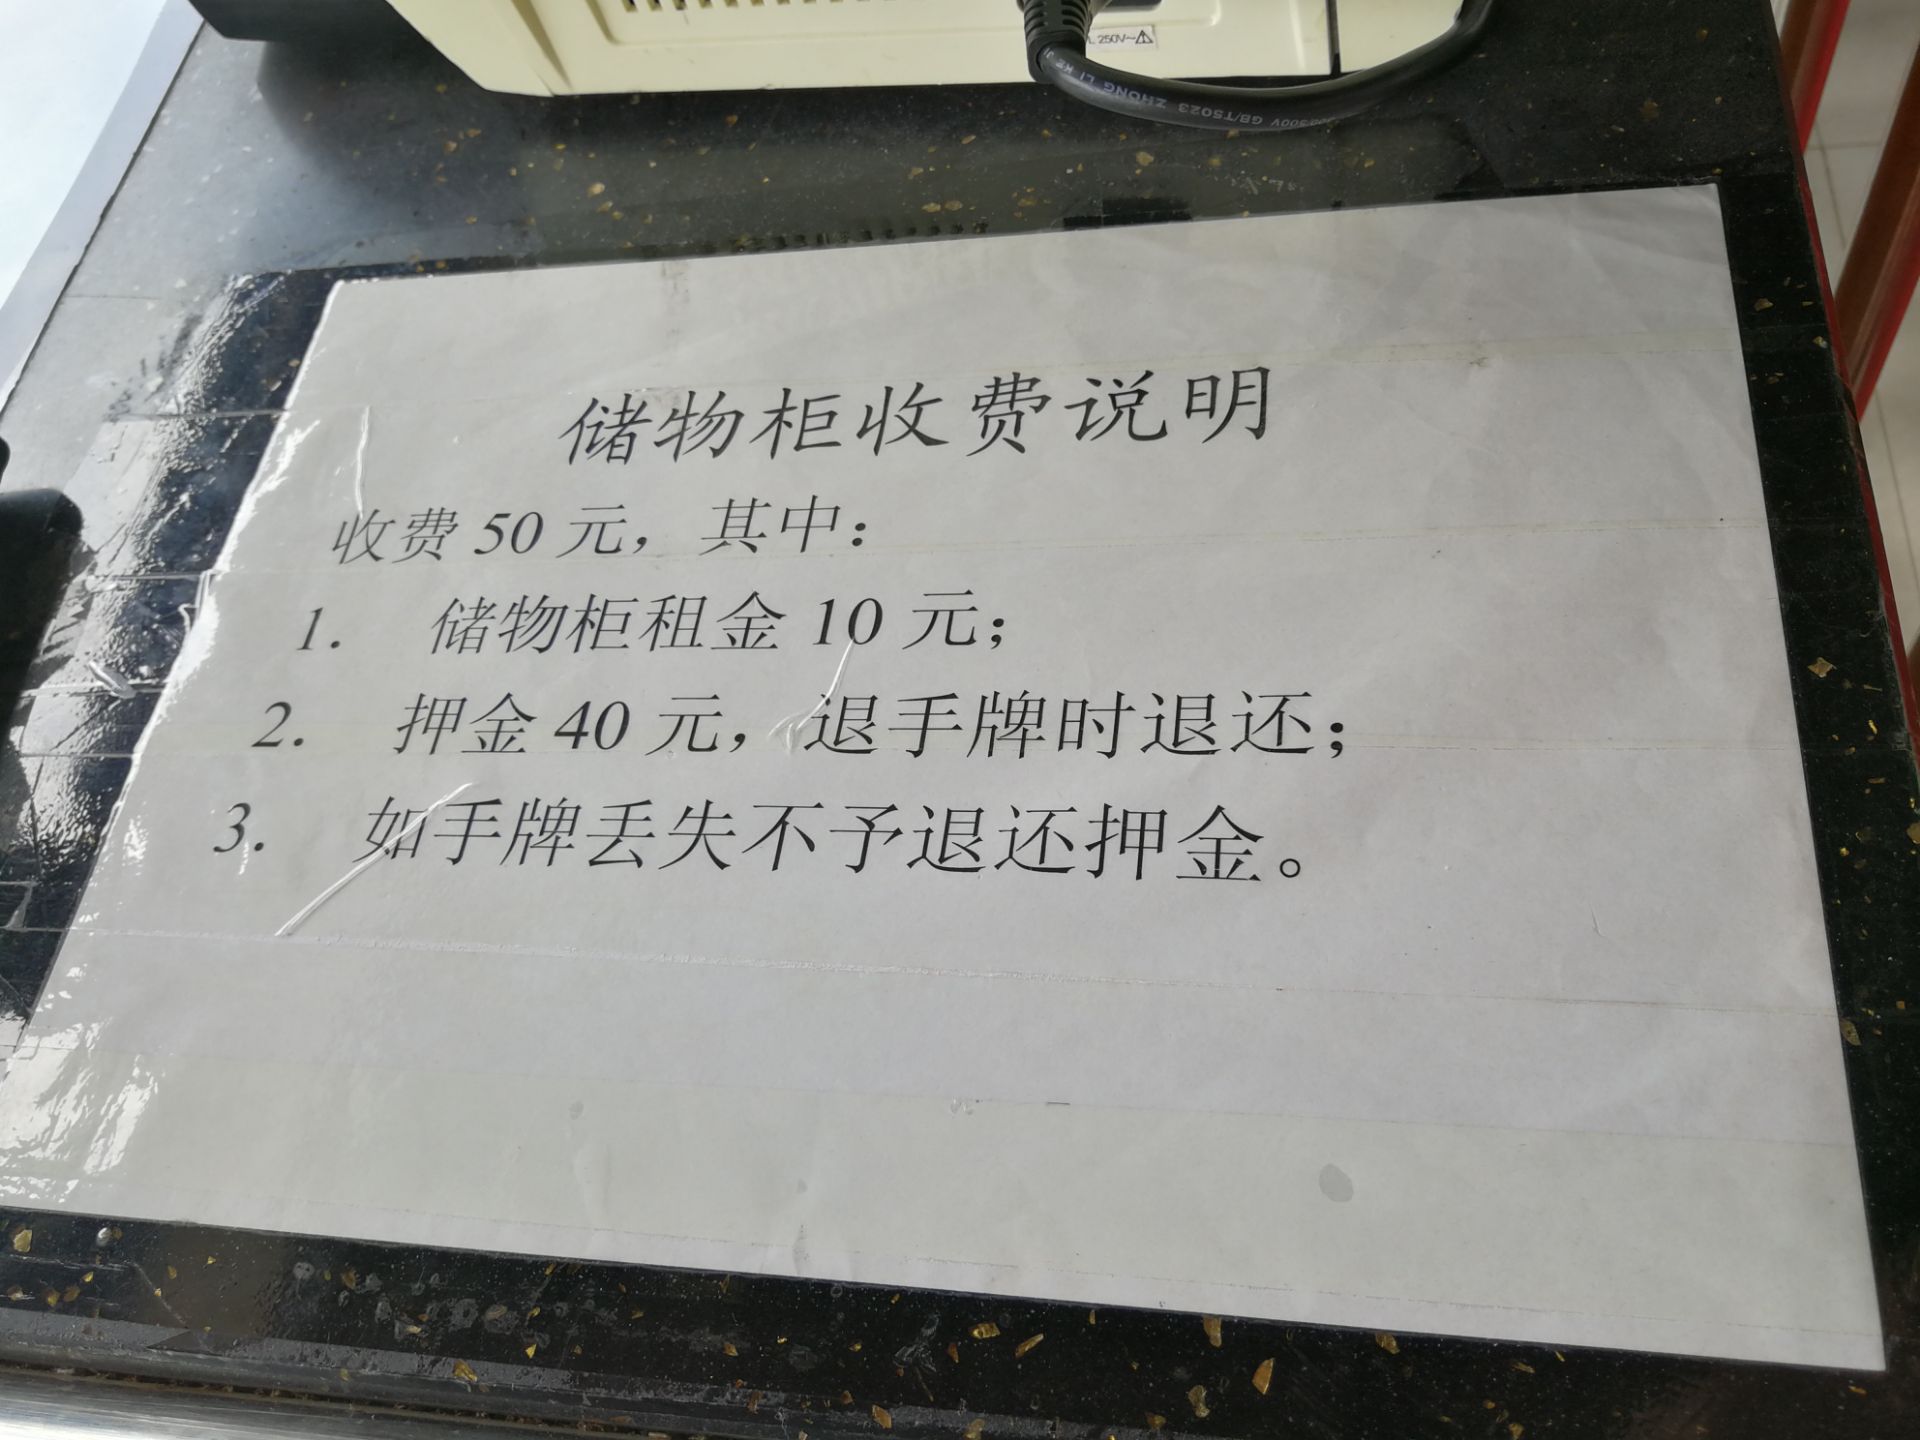 250V~
ZHONG LI KE J
GB/T5023
储物柜收费说明
收费 50 元，其中：
1. 储物柜租金 10 元；
2. 押金 40 元，退手牌时退还；
3. 如手牌丢失不予退还押金。